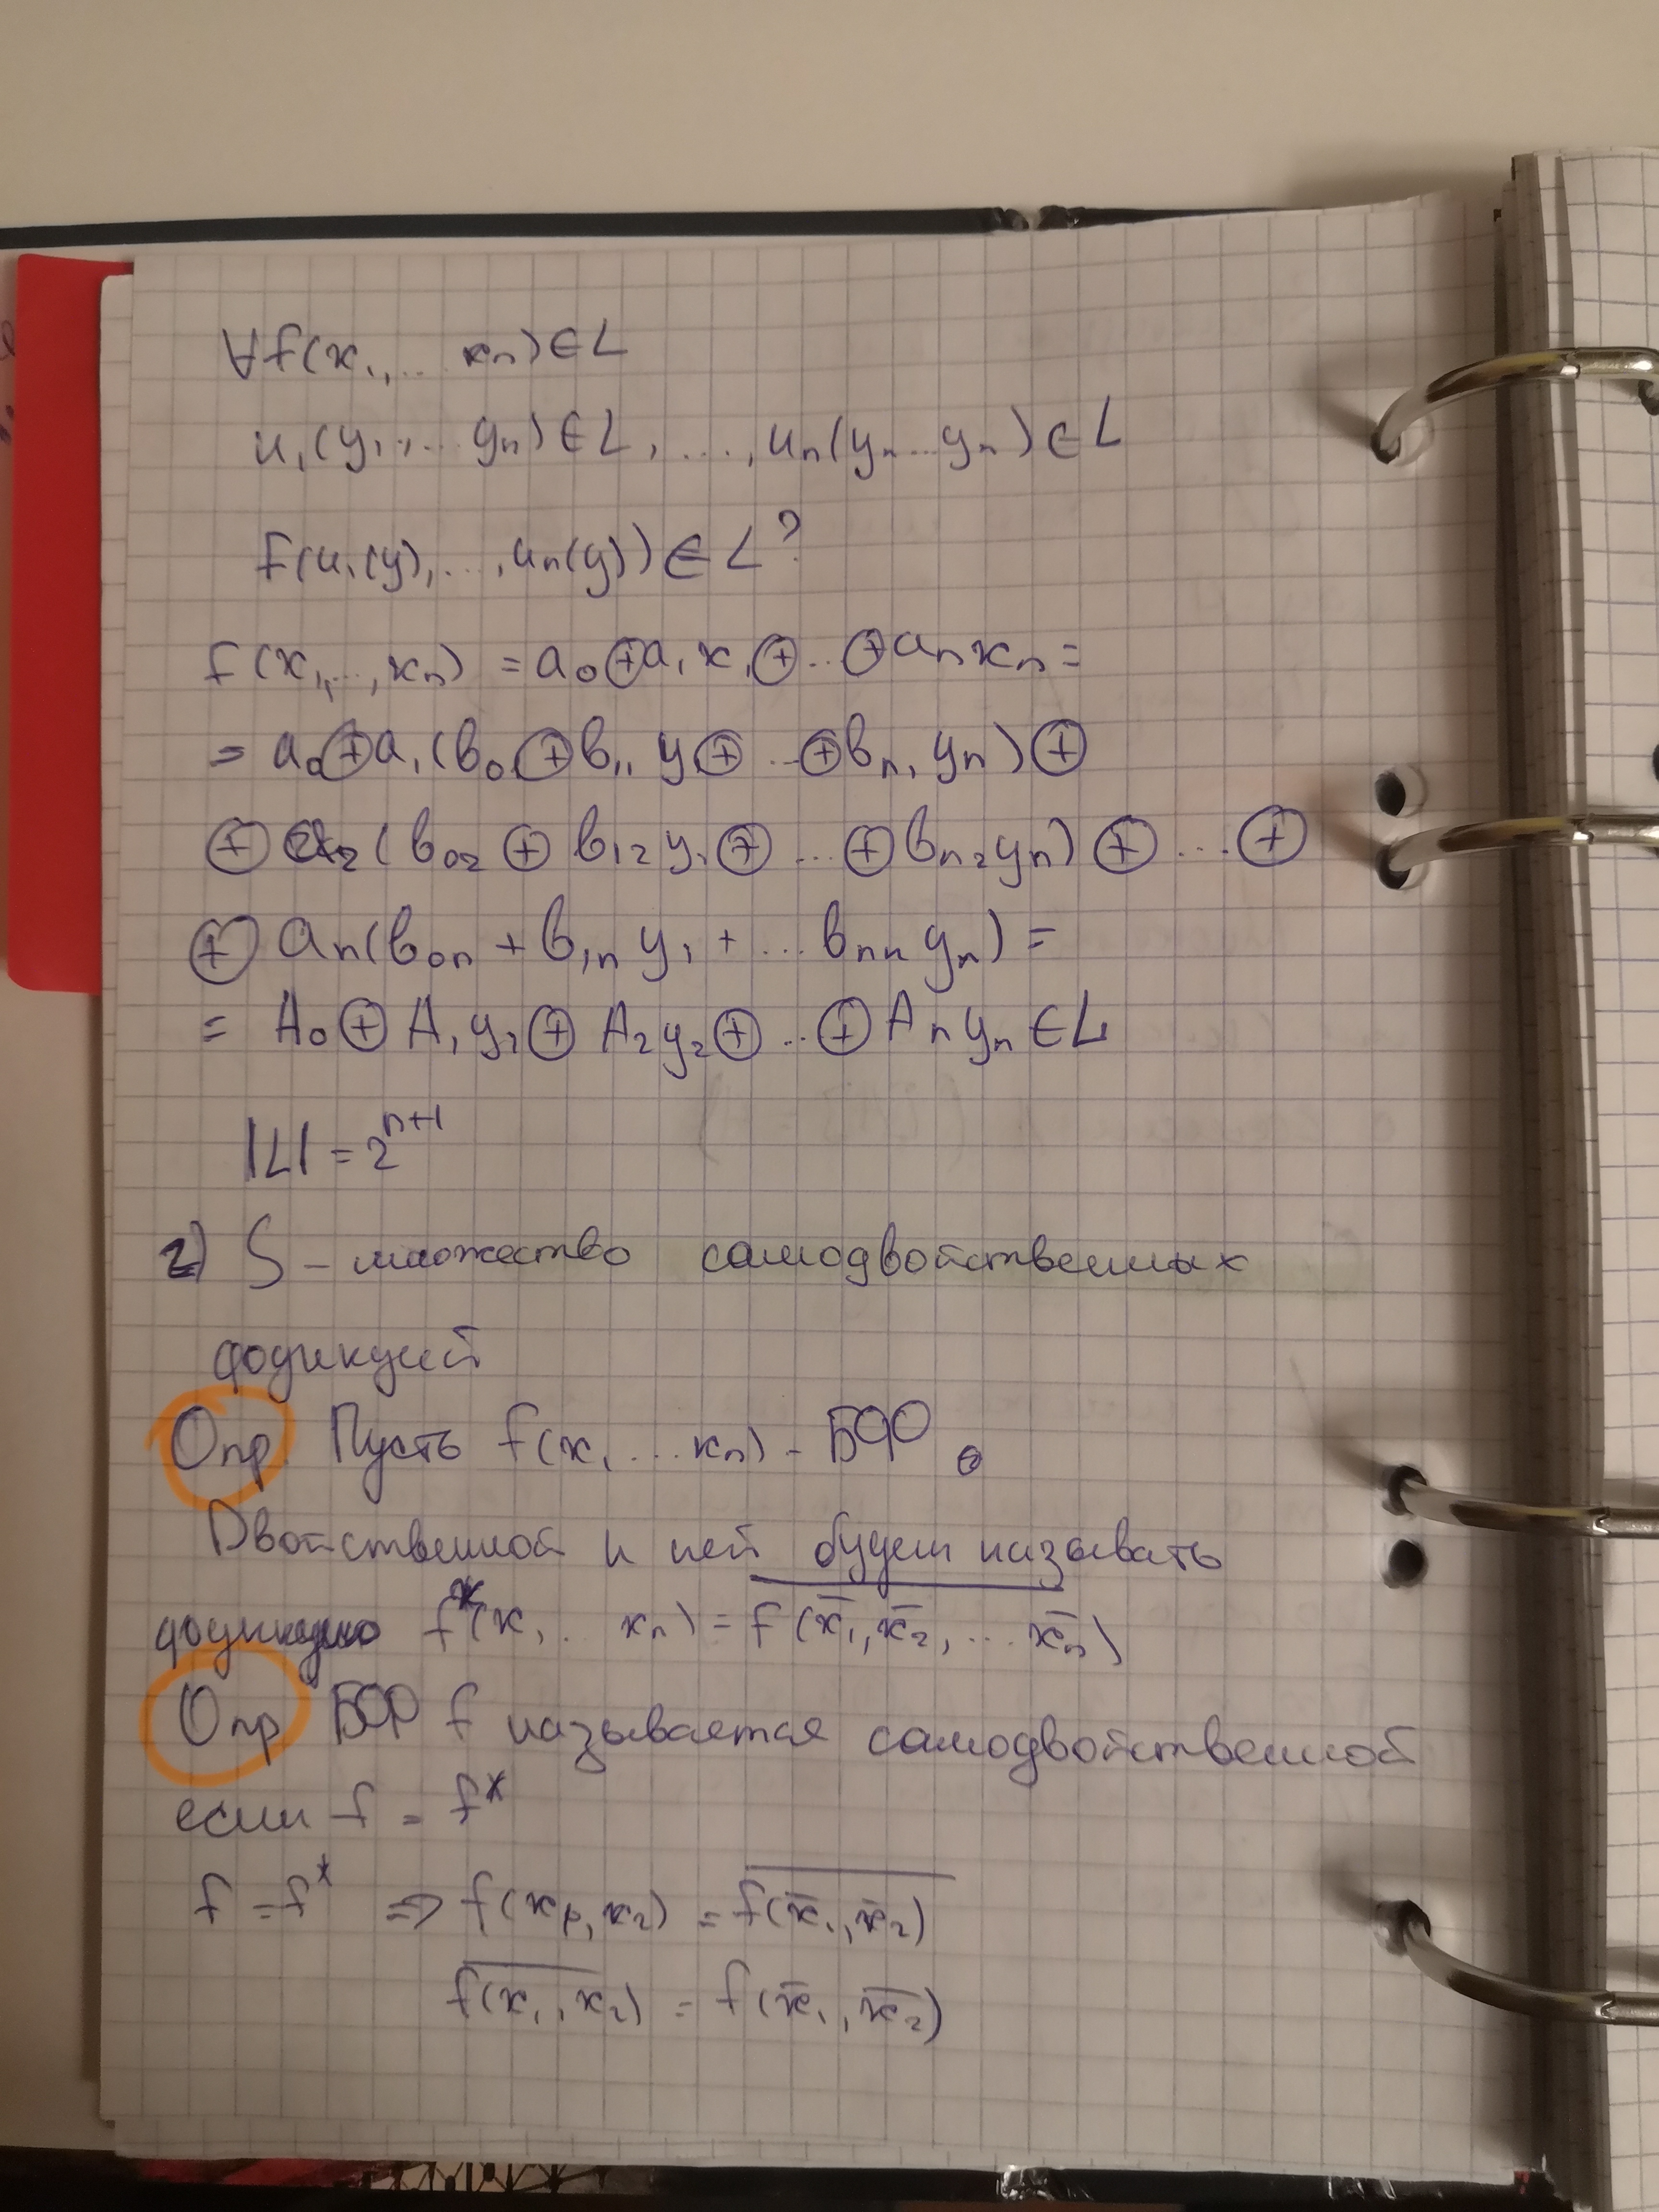 ∀f(x₁,...xₙ)∈L
u₁(y₁,...yₙ)∈L, ..., uₙ(yₙ...yₙ)∈L
f(u₁(y),...,uₙ(y))∈L?
f(x₁,...,xₙ) = a₀⊕a₁x₁⊕...⊕aₙxₙ=
= a₀⊕a₁(b₀₁⊕b₁₁y₁⊕...⊕bₙ₁yₙ)⊕
⊕a₂(b₀₂⊕b₁₂y₁⊕...⊕bₙ₂yₙ)⊕...⊕
⊕aₙ(b₀ₙ+b₁ₙy₁+...bₙₙyₙ)=
= A₀⊕A₁y₁⊕A₂y₂⊕...⊕Aₙyₙ∈L
|L|=2ⁿ⁺¹
2) S – множество самодвойственных
функций
Опр. Пусть f(x₁...xₙ) - БФ.
Двойственной к ней будем называть
функцию f*(x₁...xₙ) = f(x̄₁,x̄₂,...x̄ₙ)
Опр БФ f называется самодвойственной
если f = f*
f = f* => f(x₁,x₂) = \overline{f(x̄₁,x̄₂)}
\overline{f(x₁,x₂)} = f(x̄₁,x̄₂)